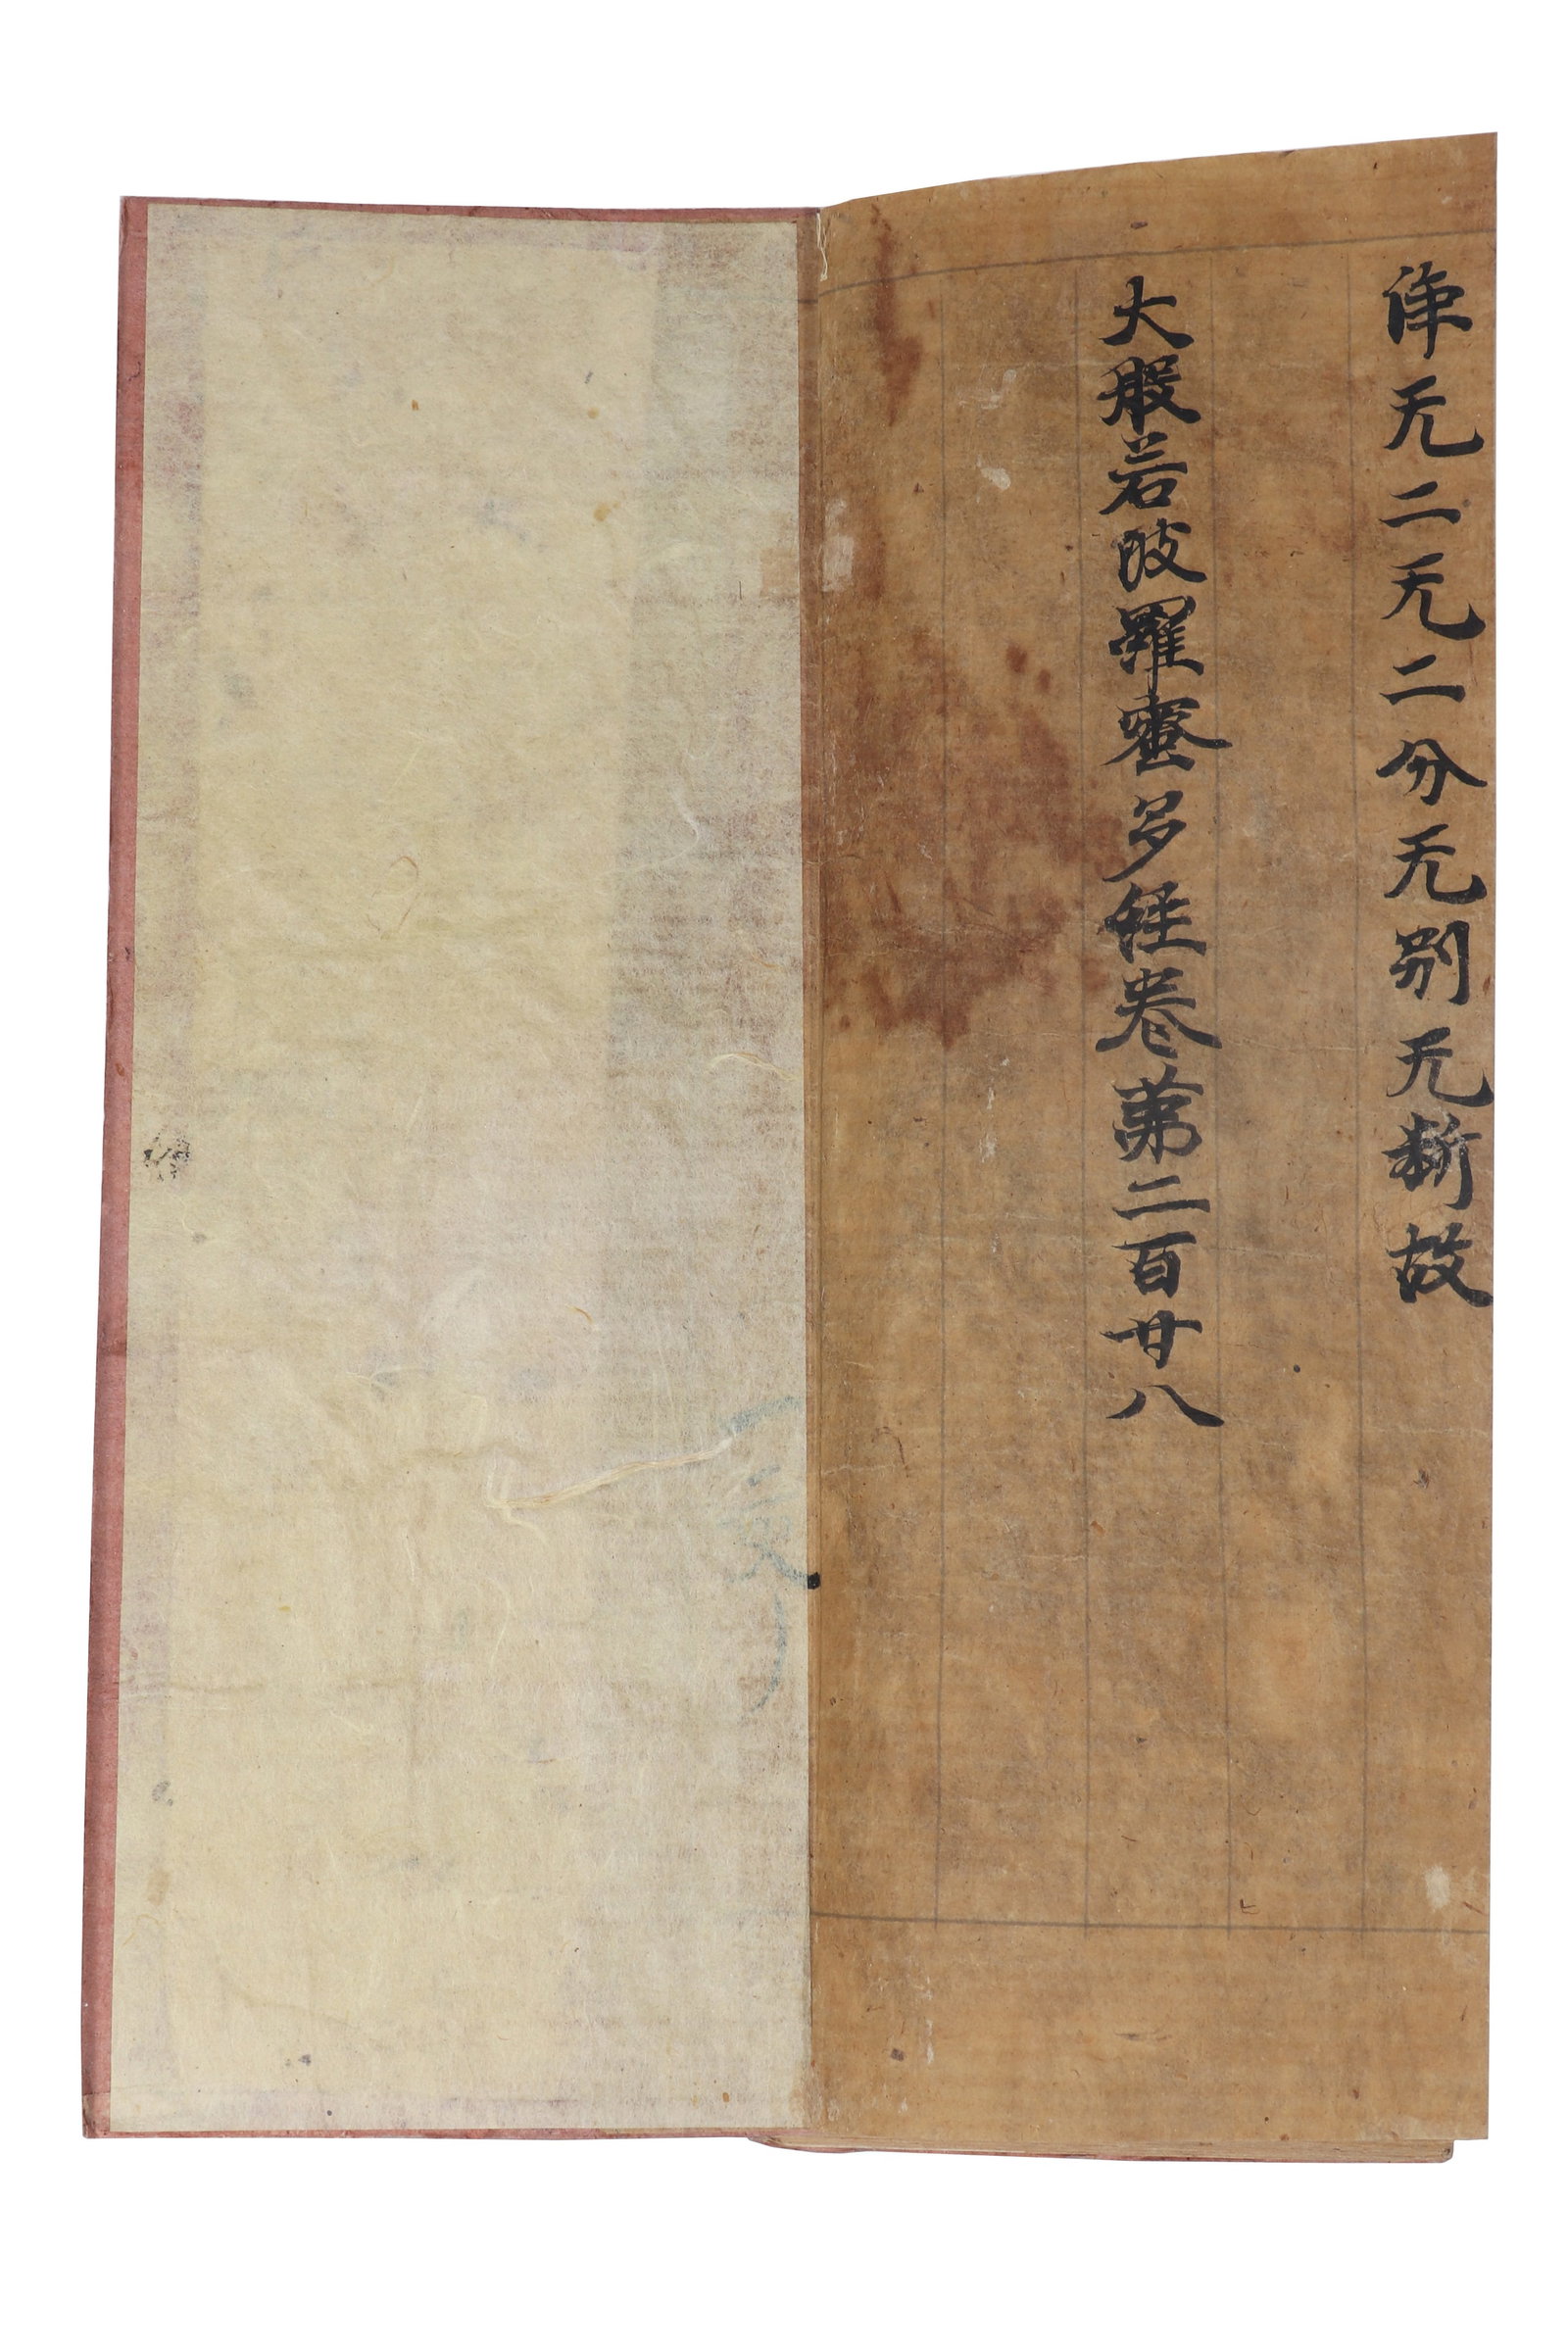 淨无二无二分无別无斷故
大般若波羅蜜多經卷第二百廿八